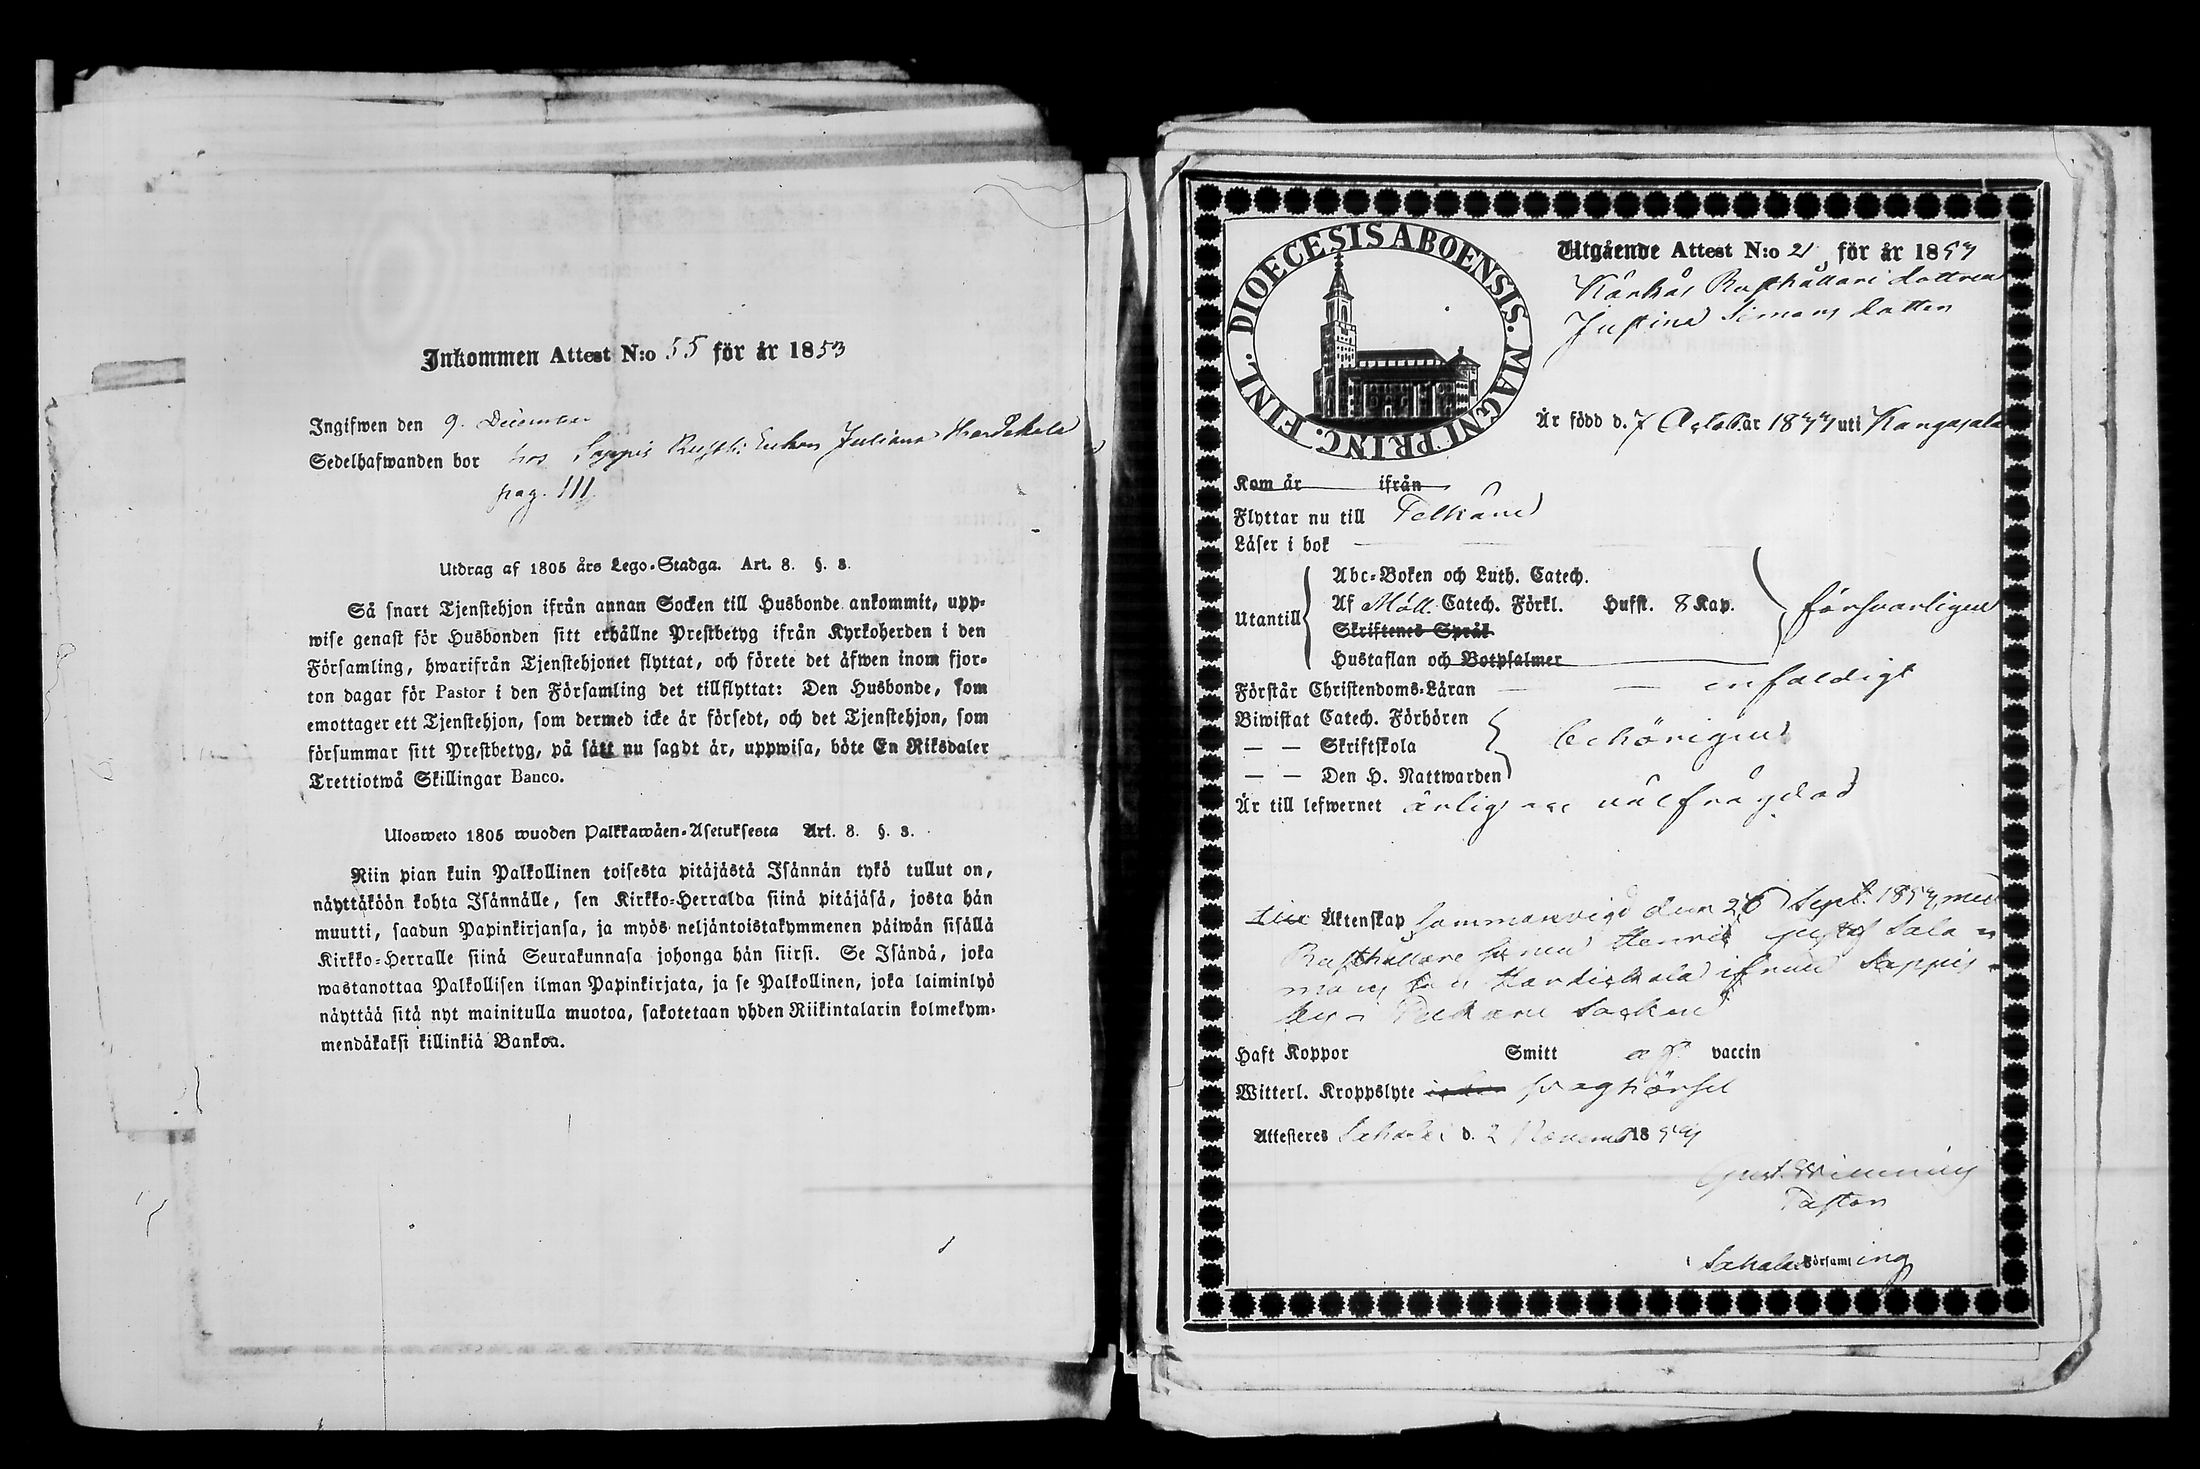 Inkommen Attest N:o 55 för år 1853
Ingifwen den 9. December
Sedelhafwanden bor hos Sappis Rusth: Enkan Juliana
pag. 111.
Utdrag af 1805 års Lego-Stadga. Art. 8. §. 3.
Så snart Tjenstehjon ifrån annan Socken till Husbonde ankommit, upp-
wise genast för Husbonden sitt erhållne Prestbetyg ifrån Kyrkoherden i den
Församling, hwarifrån Tjenstehjonet flyttat, och förete det äfwen inom fjor-
ton dagar för Pastor i den Församling det tillflyttat: Den Husbonde, som
emottager ett Tjenstehjon, som dermed icke är försedt, och det Tjenstehjon, som
försummar sitt Prestbetyg, på sätt nu sagdt är, uppwisa, böte En Riksdaler
Trettiotwå Skillingar Banco.
Ulosweto 1805 wuoden Palkkawäen-Asetuksesta Art. 8. §. 3.
Niin pian kuin Palkollinen toisesta pitäjästä Isännän tykö tullut on,
näyttäköön kohta Isännälle, sen Kirkko-Herralda siinä pitäjäsä, josta hän
muutti, saadun Papinkirjansa, ja myös neljäntoistakymmenen päiwän sisällä
Kirkko-Herralle siinä Seurakunnasa johonga hän siirsi. Se Isändä, joka
wastanottaa Palkollisen ilman Papinkirjata, ja se Palkollinen, joka laiminlyö
näyttää sitä nyt mainitulla muotoa, sakotetaan yhden Riikintalarin kolmekym-
mendäkaksi killinkiä Bankoa.
DIOECESIS ABOENSIS. MAGNI PRINC. FINL.
Utgående Attest N:o 21 för år 1853
Rusthållari dottren
Justina Simons dotter
Är född d. 7 Octob. år 1833 uti Kangasala
Kom år ifrån
Flyttar nu till Pelkäne
Läser i bok
Abc-Boken och Luth. Catech.
Utantill Af Möll. Catech. Förkl. Hufst. 8 Kap. försvarligen
Skriftenes Språk
Hustaflan och Botpsalmer
Förstår Christendoms-Läran enfaldigt
Biwistat Catech. Förhören
— — Skriftskola behörigen
— — Den H. Nattwarden
Är till lefwernet ärlig och välfrägdad
till Äktenskap sammanvigd den 26 Sept. 1853 med
Rusthållare sonen Henric Gustaf Salo-
mons son ifrån Sappis
by i Pelkäne Socken
Haft Koppor Smitt af vaccin
Witterl. Kroppslyte svag hörsel
Attesteres Sahalax d. 2 Novemb. 1853
Pastor
i Sahalax Församling